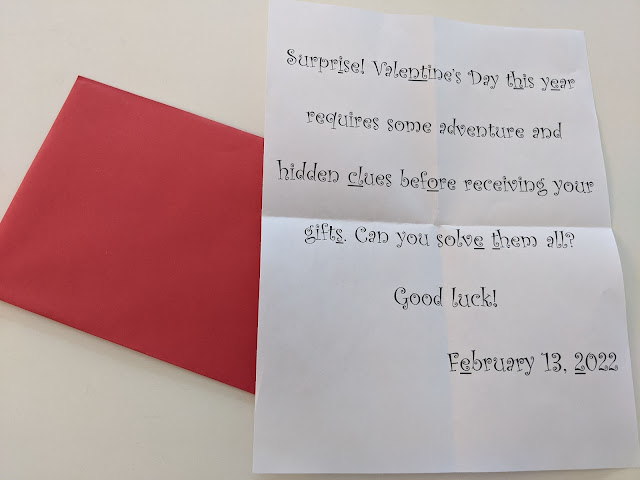 Surprise! Valentine's Day this year
requires some adventure and
hidden clues before receiving your
gifts. Can you solve them all?
Good luck!
February 13, 2022